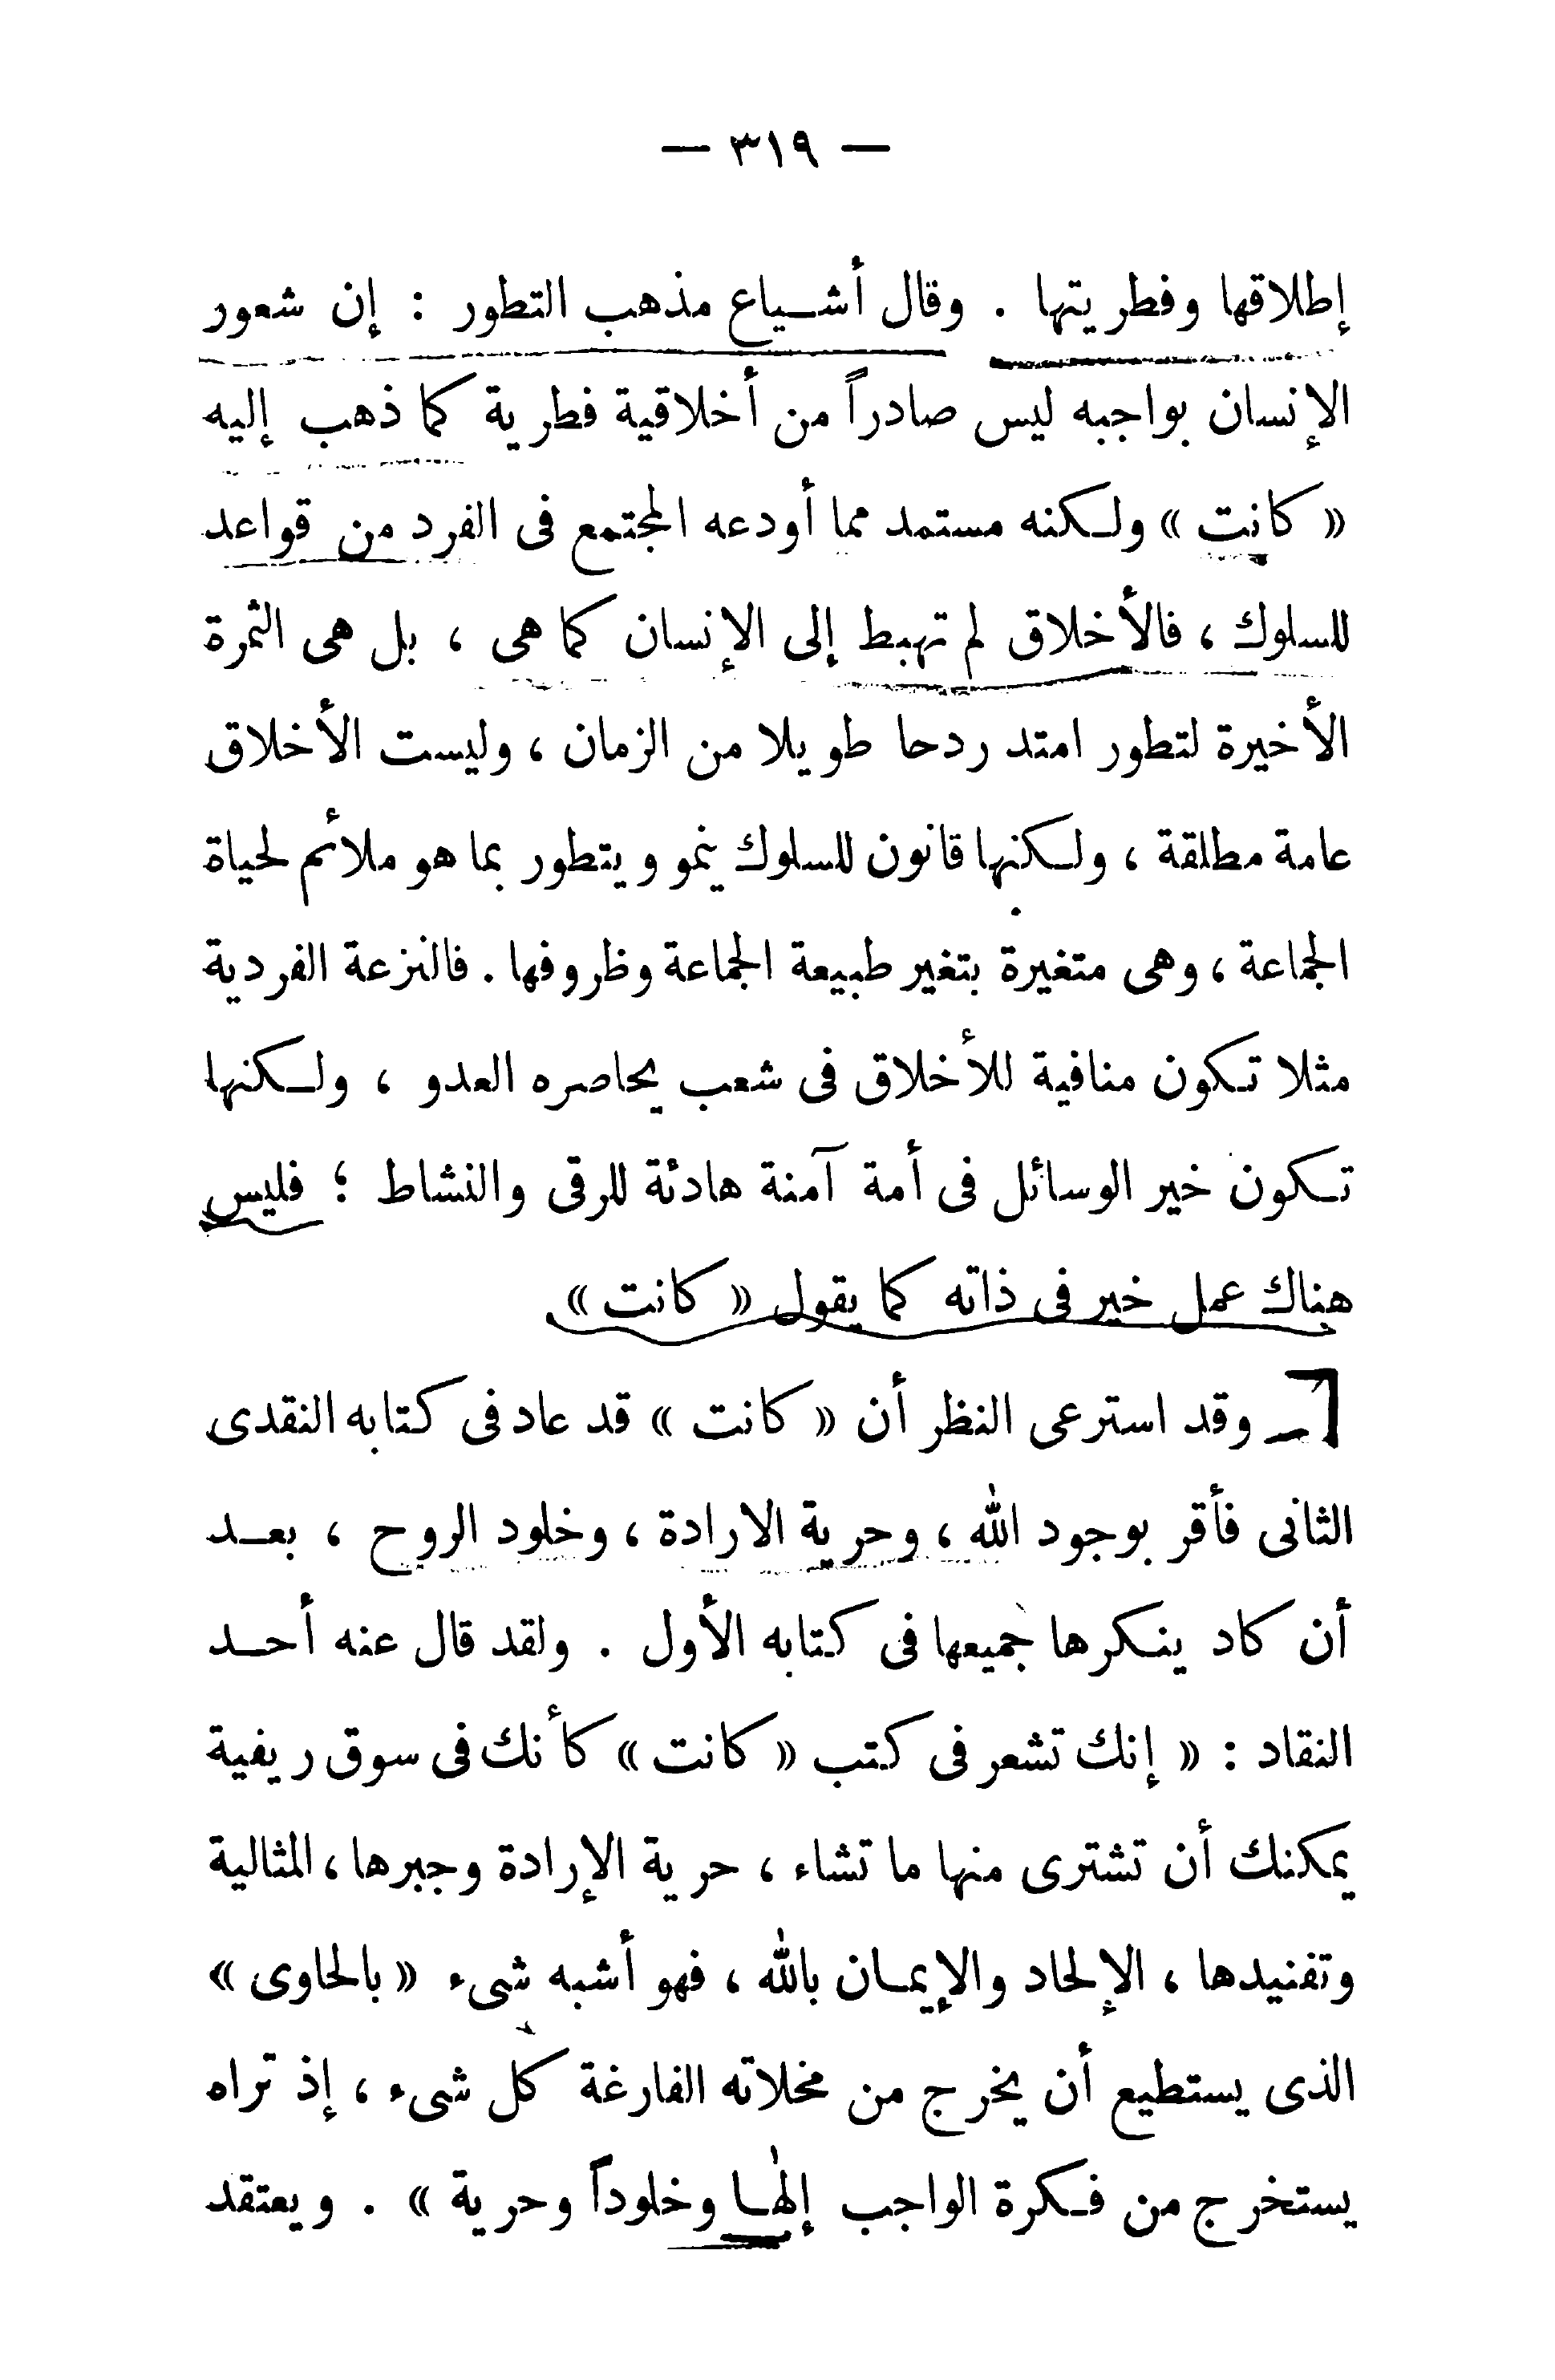 — ٣١٩ —
إطلاقها وفطريتها . وقال أشياع مذهب التطور : إن شعور
الإنسان بواجبه ليس صادراً من أخلاقية فطرية كما ذهب إليه
« كانت » ولكنه مستمد مما أودعه المجتمع فى الفرد من قواعد
للسلوك ، فالأخلاق لم تهبط إلى الإنسان كما هى ، بل هى الثمرة
الأخيرة لتطور امتد ردحا طويلا من الزمان ، وليست الأخلاق
عامة مطلقة ، ولكنها قانون للسلوك ينمو ويتطور بما هو ملائم لحياة
الجماعة ، وهى متغيرة بتغير طبيعة الجماعة وظروفها . فالنزعة الفردية
مثلا تكون منافية للأخلاق فى شعب يحاصره العدو ، ولكنها
تكون خير الوسائل فى أمة آمنة هادئة للرقى والنشاط ؛ فليس
هناك عمل خير فى ذاته كما يقول « كانت » .
وقد استرعى النظر أن « كانت » قد عاد فى كتابه النقدى
الثانى فأقر بوجود الله ، وحرية الارادة ، وخلود الروح ، بعد
أن كاد ينكرها جميعها فى كتابه الأول . ولقد قال عنه أحد
النقاد : « إنك تشعر فى كتب « كانت » كأنك فى سوق ريفية
يمكنك أن تشترى منها ما تشاء ، حرية الإرادة وجبرها ، المثالية
وتفنيدها ، الإلحاد والإيمان بالله ، فهو أشبه شىء « بالحاوى »
الذى يستطيع أن يخرج من مخلاته الفارغة كل شىء ، إذ تراه
يستخرج من فكرة الواجب إلٰها وخلوداً وحرية » . ويعتقد